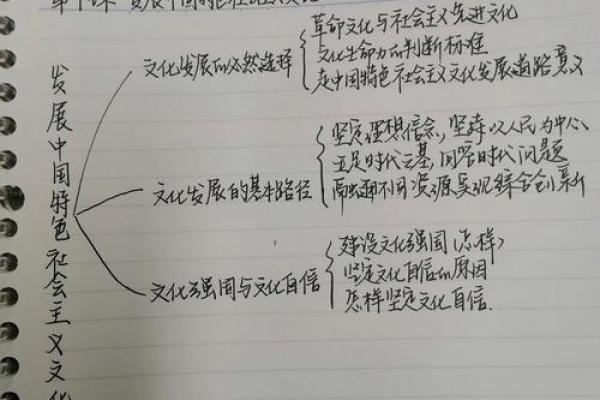 发展中国特色社会主义文化
文化发展的必然选择
革命文化与社会主义先进文化
文化生命力的判断标准
走中国特色社会主义文化发展道路意义
文化发展的基本路径
坚定理想信念,坚持以人民为中心
立足时代之基,回答时代问题
不同资源实现综合创新
文化强国与文化自信
建设文化强国(怎样)
坚定文化自信的原因
怎样坚定文化自信.